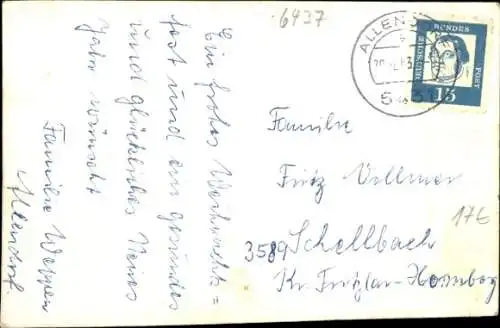 6437
Ein frohes Weihnachts=
fest und ein gesundes
und glückliches Neues
Jahr wünscht
Familie
Allendorf.
ALLENDORF
BUNDES
POST
15
Familie
Fritz Vollmer
3589 Schellbach
Kr. Fritzlar-Homberg
176